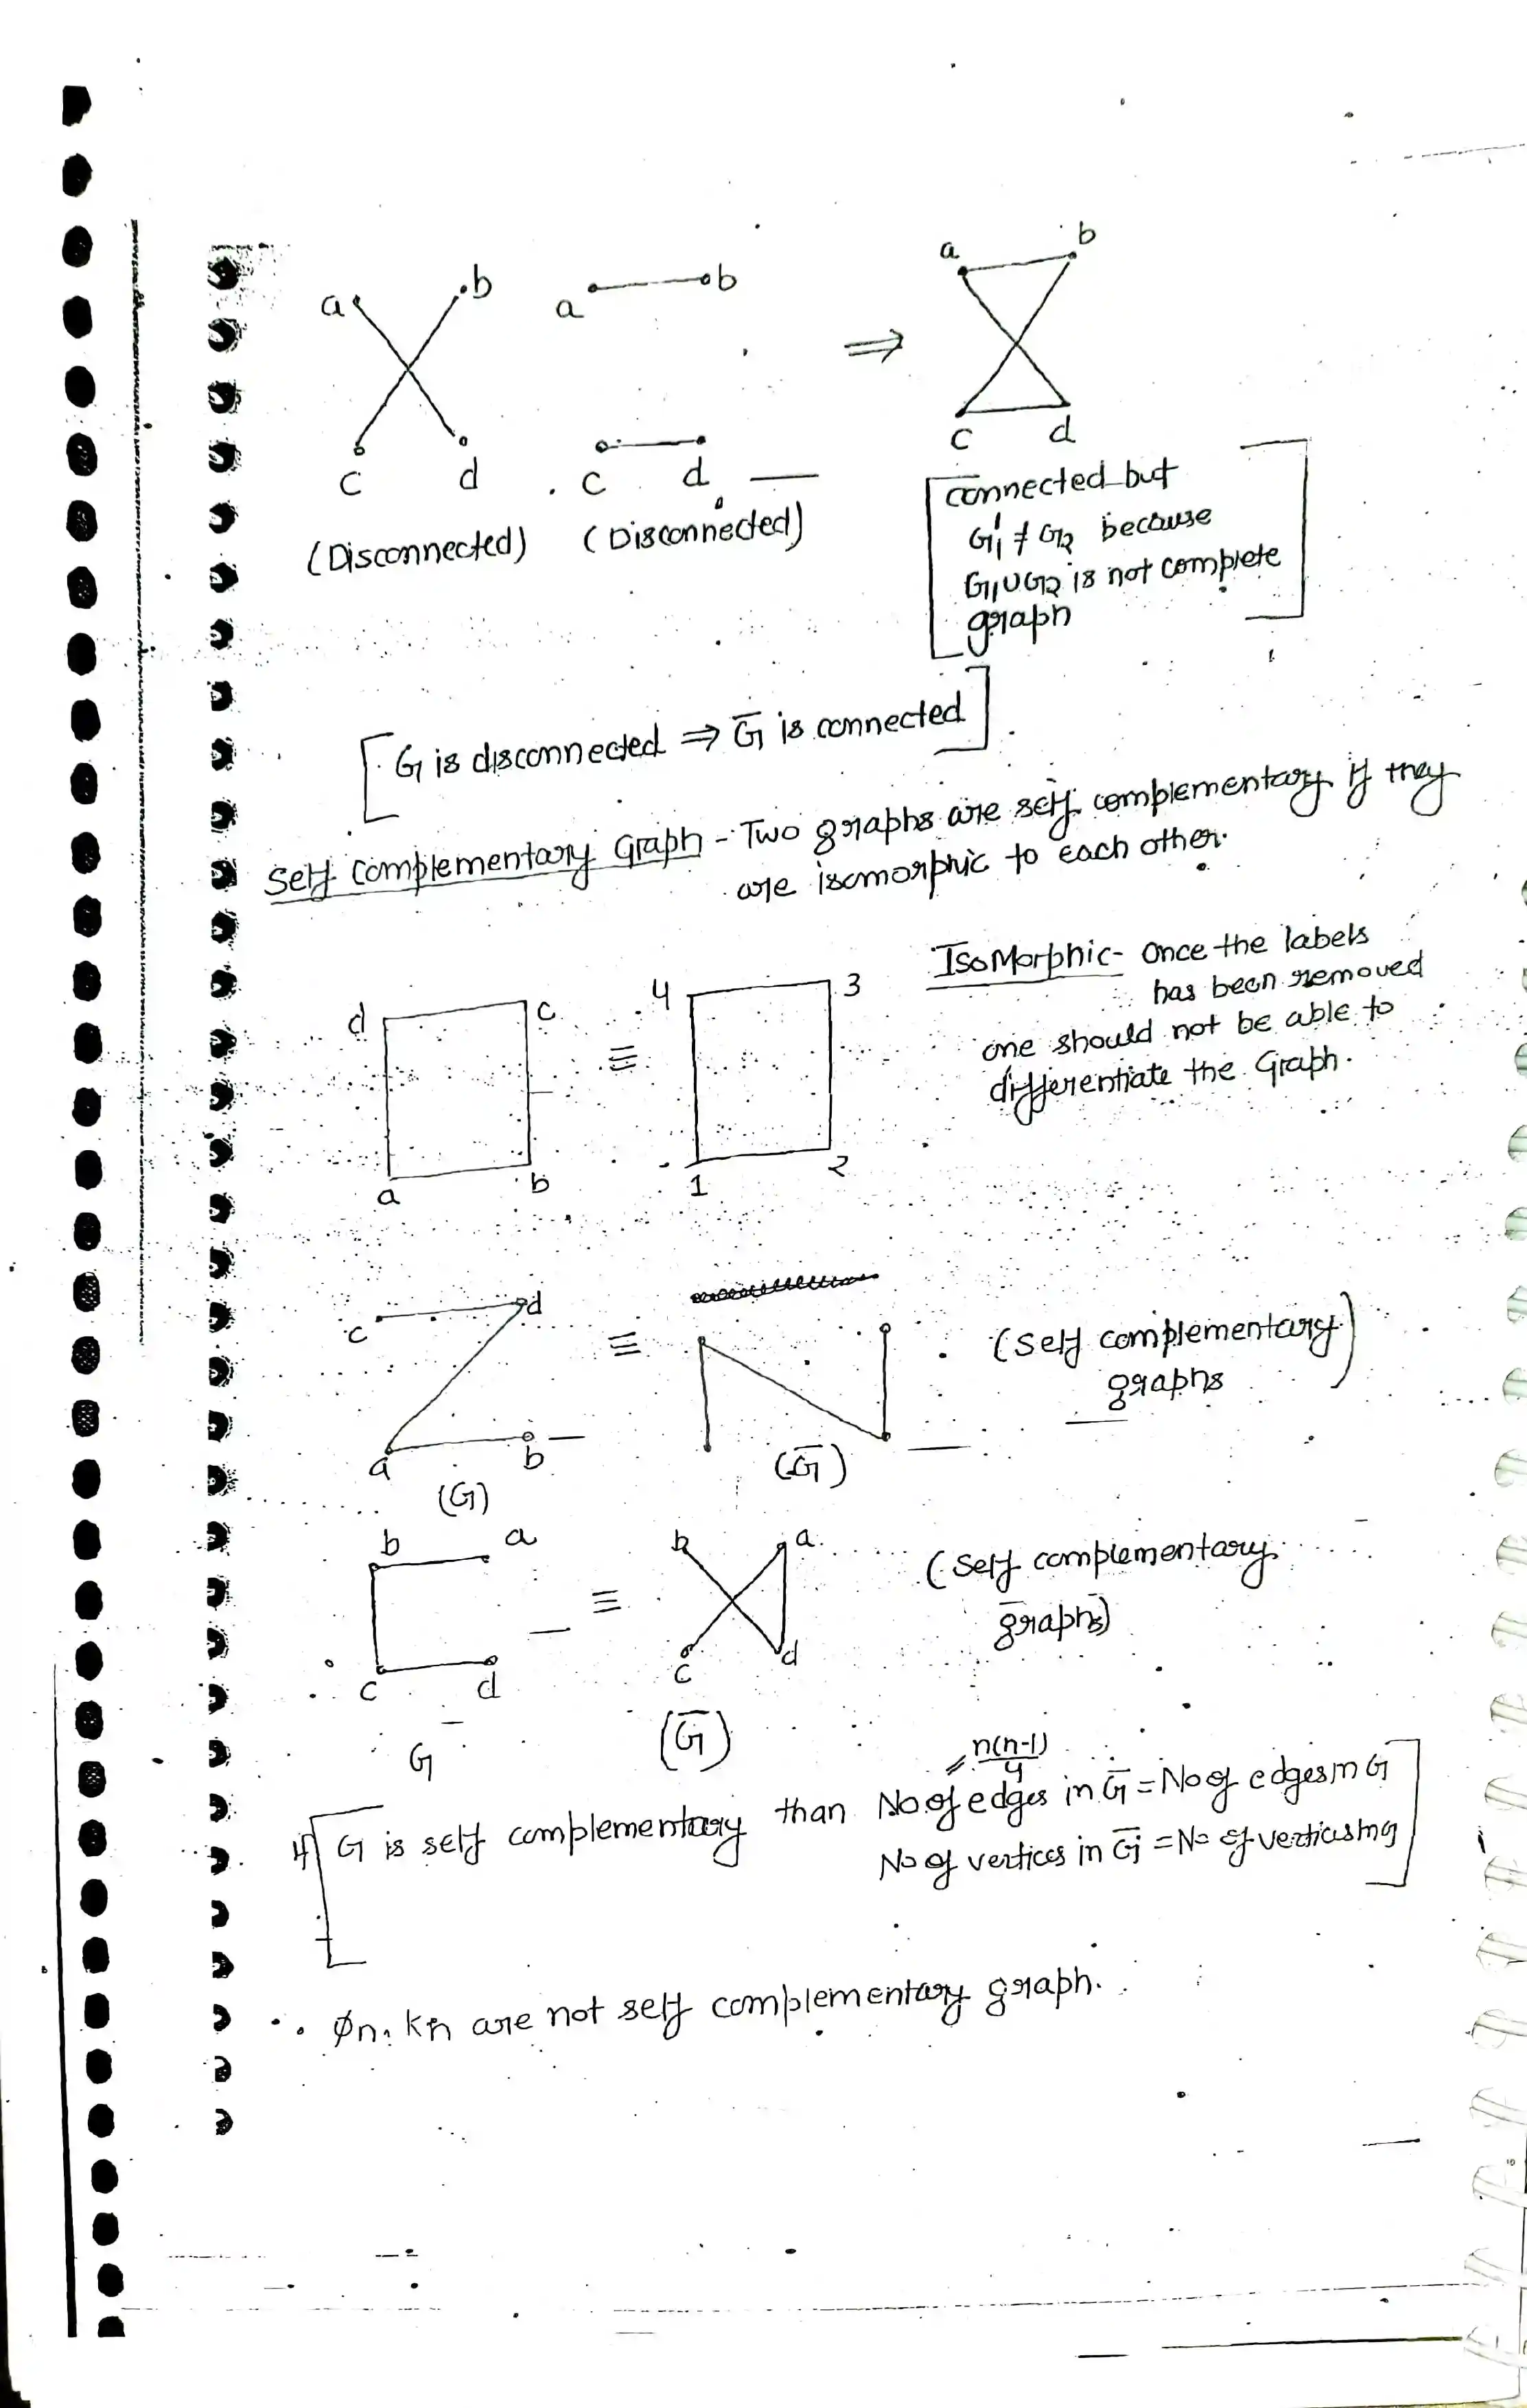 a b a b ⇒ a b
c d c d c d
(Disconnected) (Disconnected)
connected but
G₁' ≠ G₂ because
G₁∪G₂ is not complete
graph
[G is disconnected ⇒ G̅ is connected]
Self Complementary Graph - Two graphs are self complementary if they
are isomorphic to each other.
IsoMorphic- Once the labels
has been removed
one should not be able to
differentiate the Graph.
d c ≡ 4 3
a b 1 2
c d ≡ (Self complementary
graphs)
a b (G̅)
(G)
b a ≡ b a (Self complementary
graphs)
c d c d
G (G̅)
= n(n-1)/4
If G is self complementary than No of edges in G̅ = No of edges in G
No of vertices in G̅ = No of vertices in G
∴ Øn, Kn are not self complementary graph.